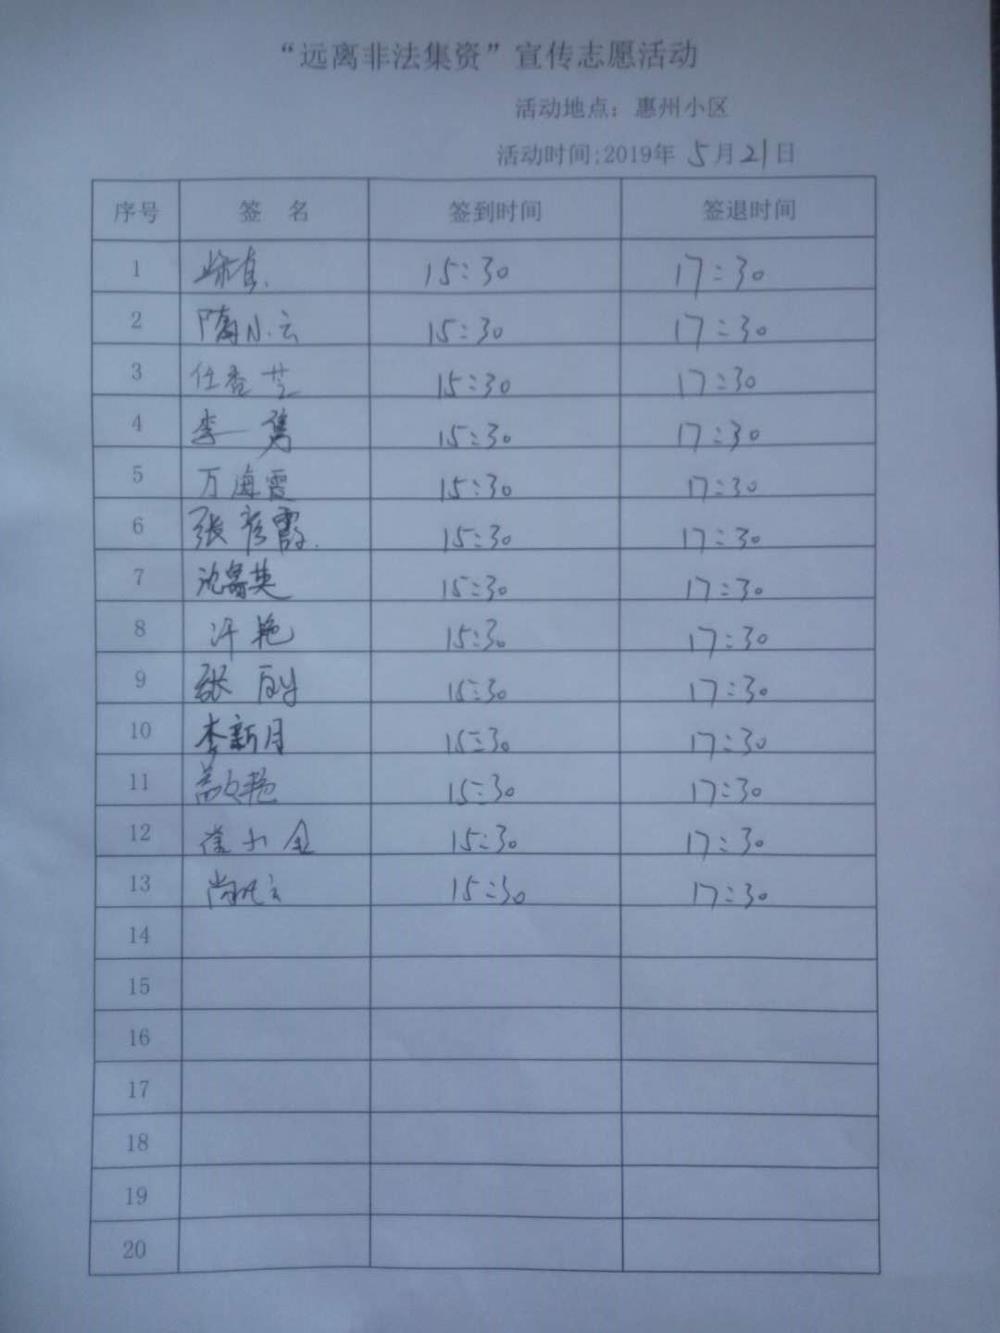 “远离非法集资”宣传志愿活动
活动地点：惠州小区
活动时间:2019年 5月21日
序号 签 名 签到时间 签退时间
1 15:30 17:30
2 陶小云 15:30 17:30
3 任香芝 15:30 17:30
4 李勇 15:30 17:30
5 万海霞 15:30 17:30
6 张彦霞 15:30 17:30
7 沈英 15:30 17:30
8 汗艳 15:30 17:30
9 张 15:30 17:30
10 李新月 15:30 17:30
11 艳 15:30 17:30
12 崔小金 15:30 17:30
13 尚 15:30 17:30
14
15
16
17
18
19
20